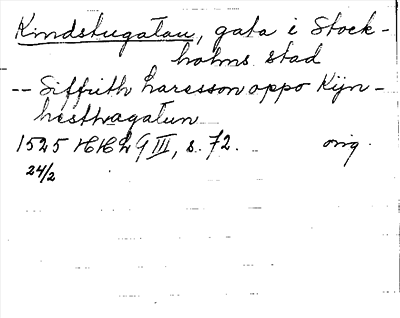 Kindstugatan, gata i Stock-
holms stad
-- Siffrith Laresson oppo Kijn-
hesthagatun
1525 HHLG III, s. 72. orig.
24/2